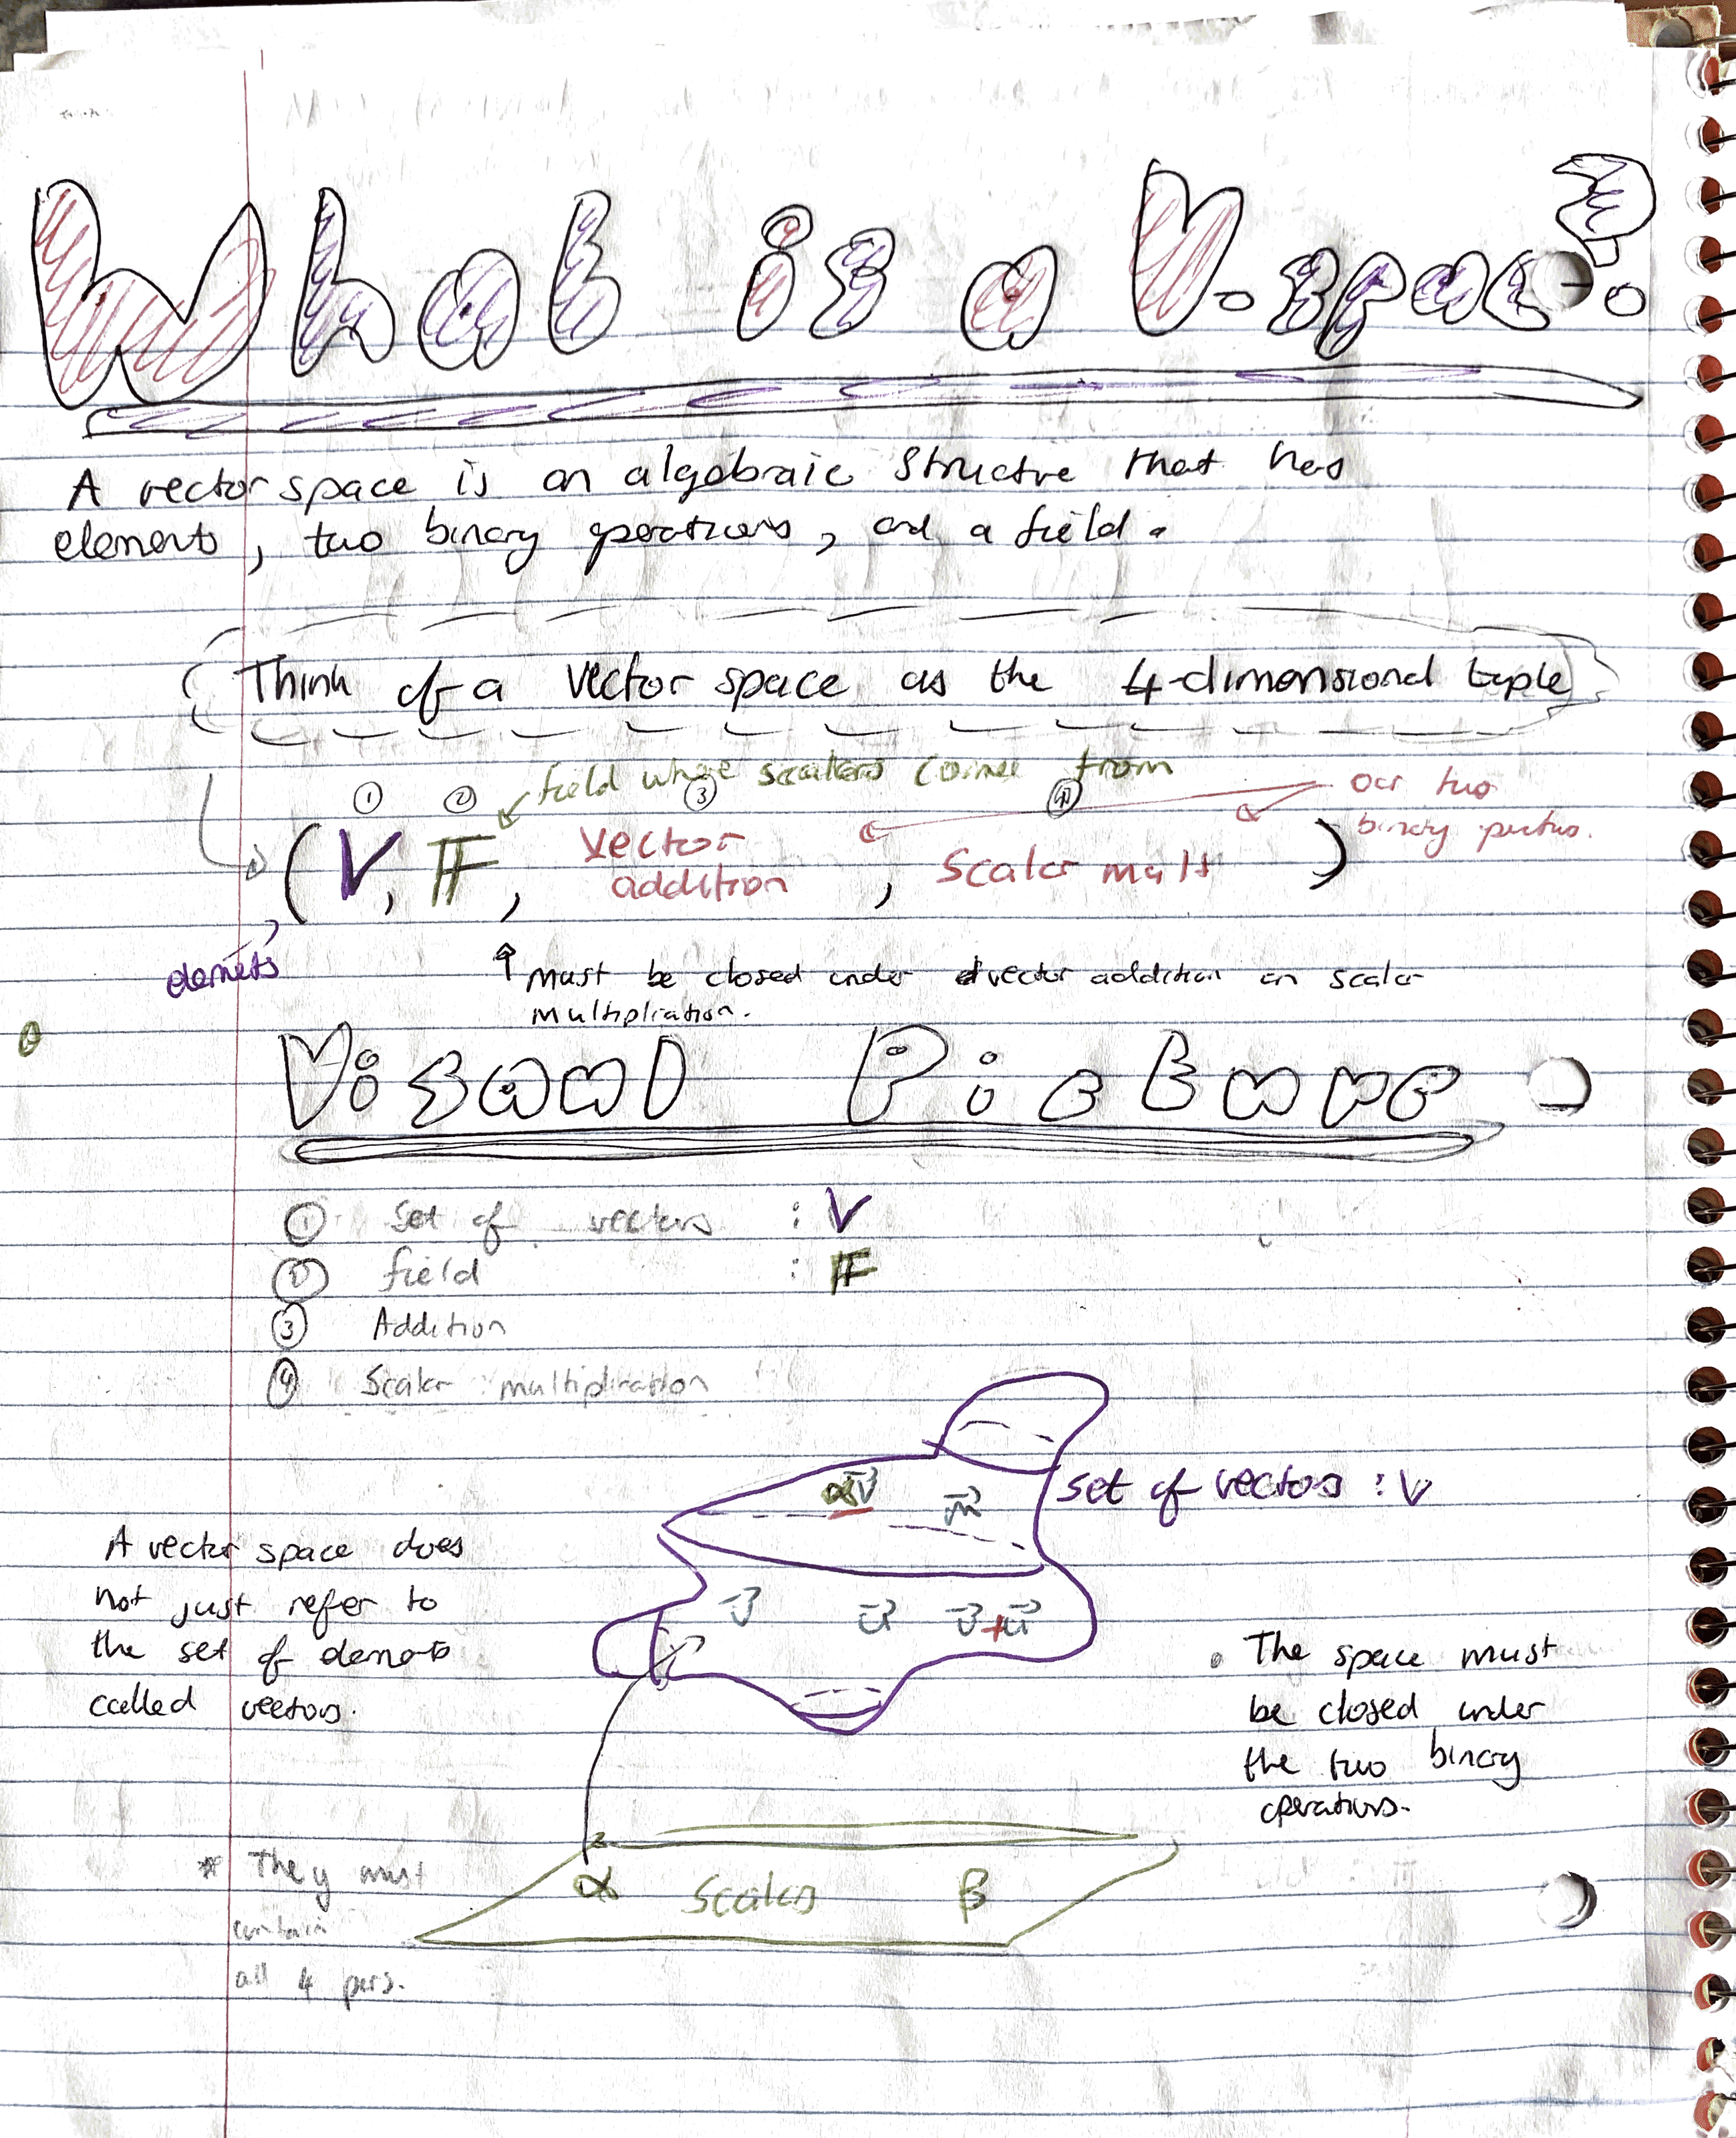 What is a V. space?
A vector space is an algebraic structure that has
elements, two binary operations, and a field.
Think of a vector space as the 4-dimensional tuple
field whose scalars come from
① ② ③ ④
our two
binary
(V, F, vector addition, scalar mult)
elements
must be closed under vector addition an scalar
multiplication.
Visual Picture
① Set of vectors : V
② field : F
③ Addition
④ Scalar multiplication
set of vectors : V
αv⃗
A vector space does
not just refer to
the set of elements
called vectors.
v⃗ u⃗ v⃗+u⃗
The space must
be closed under
the two binary
operations.
α Scalars β
* They must
contain
all 4